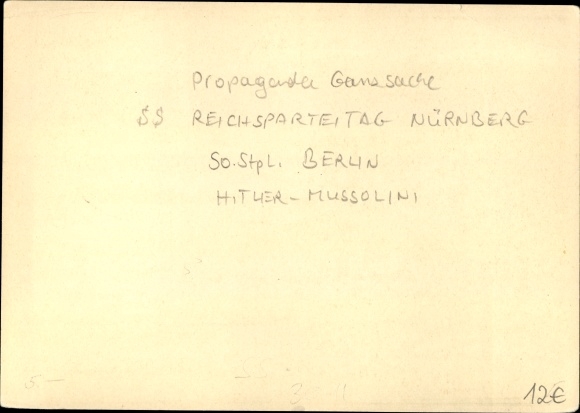 Propaganda Ganzsache
$$ REICHSPARTEITAG NÜRNBERG
So.Stpl. BERLIN
HITLER-MUSSOLINI
5.—
12€